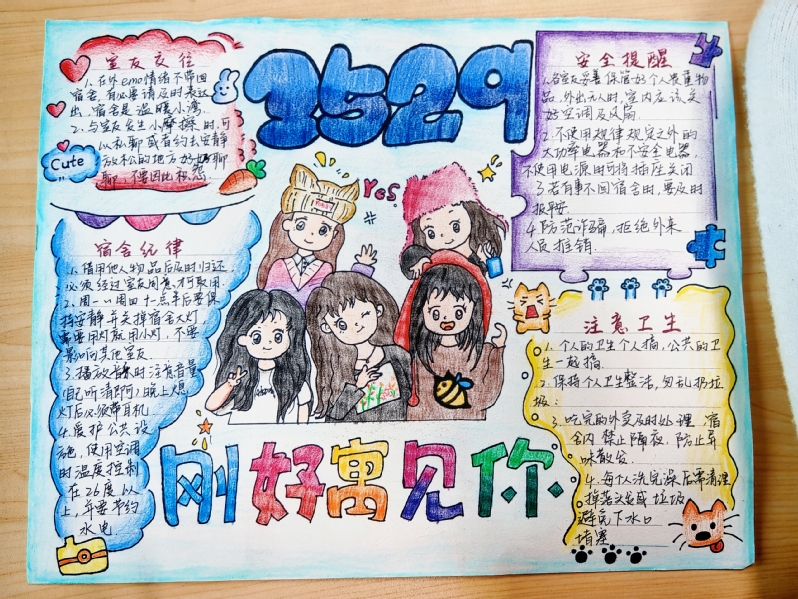 3529
室友交往
1.在外emo情绪不带回
宿舍,有必要请及时表达
出,宿舍是温暖小湾.
2.与室友发生小摩擦时,可
以私聊或者约去安静
放松的地方好好聊
聊,不要因此积怨.
Cute
宿舍纪律
1.借用他人物品后及时归还,
必须经过室友同意才可取用.
2.周一~周四十点半后要保
持安静并关掉宿舍大灯
需要用灯就用小灯,不要
影响其他室友
3.播放音乐时注意音量
(自己听清即可)晚上熄
灯后必须带耳机
4.爱护公共设
施,使用空调
时温度控制
在26度以
上,并要节约
水电.
Yes
安全提醒
1.各室友妥善保管好个人贵重物
品,外出无人时,室内应该关
好空调及风扇.
2.不使用规律规定之外的
大功率电器和不安全电器,
不使用电源时可将插座关闭
3.若有事不回宿舍时,要及时
报平安.
4.防范诈骗,拒绝外来
人员推销.
注意卫生
1.个人的卫生个人搞,公共的卫
生一起搞.
2.保持个人卫生整洁,勿乱扔垃
圾;
3.吃完的外卖及时处理,宿
舍内禁止隔夜,防止异
味散发.
4.每个人洗完澡后需清理
掉落头发或垃圾
避免下水口
堵塞
刚好寓见你